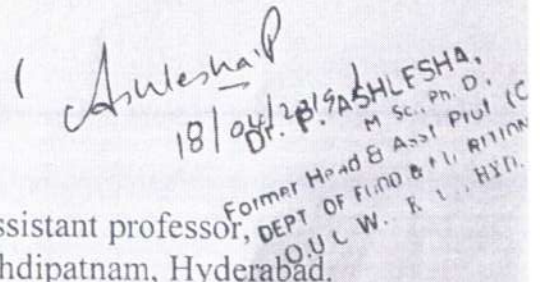 ( Ashlesha.P
18/04/2019)
Dr. P. ASHLESHA.
M Sc., Ph. D.
Former Head & Asst Prof (C
DEPT OF FOOD & NUTRITION
O.U C W. HYD.
ssistant professor,
hdipatnam, Hyderabad.